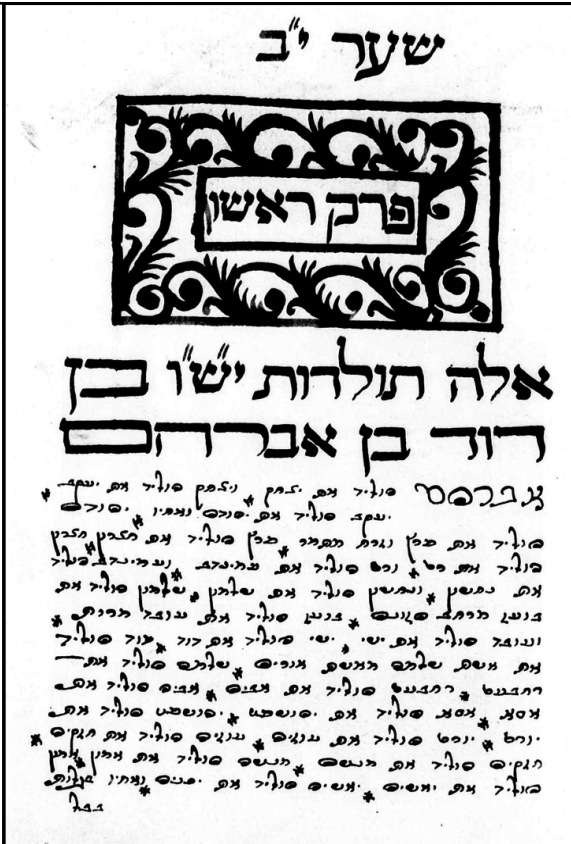 שער י״ב
פרק ראשון
אלה תולדות יש״ו בן
דוד בן אברהם
אברהם הוליד את יצחק ויצחק הוליד את יעקב
יעקב הוליד את יהודה ואחיו יהודה
הוליד את פרץ וזרח מתמר פרץ הוליד את חצרון חצרון
הוליד את רם ורם הוליד את עמינדב ועמינדב הוליד
את נחשון ונחשון הוליד את שלמון שלמון הוליד את
בועז מרחב הזונה בועז הוליד את עובד מרות
ועובד הוליד את ישי ישי הוליד את דוד דוד הוליד
את אשת שלמה מאשת אוריה שלמה הוליד את
רחבעם רחבעם הוליד את אביה אביה הוליד את
אסא אסא הוליד את יהושפט יהושפט הוליד את
יורם יורם הוליד את עוזיה עוזיה הוליד את חזקיה
חזקיה הוליד את מנשה מנשה הוליד את אמון אמון
הוליד את יאשיה יאשיה הוליד את יכניה ואחיו בגלות
בבל